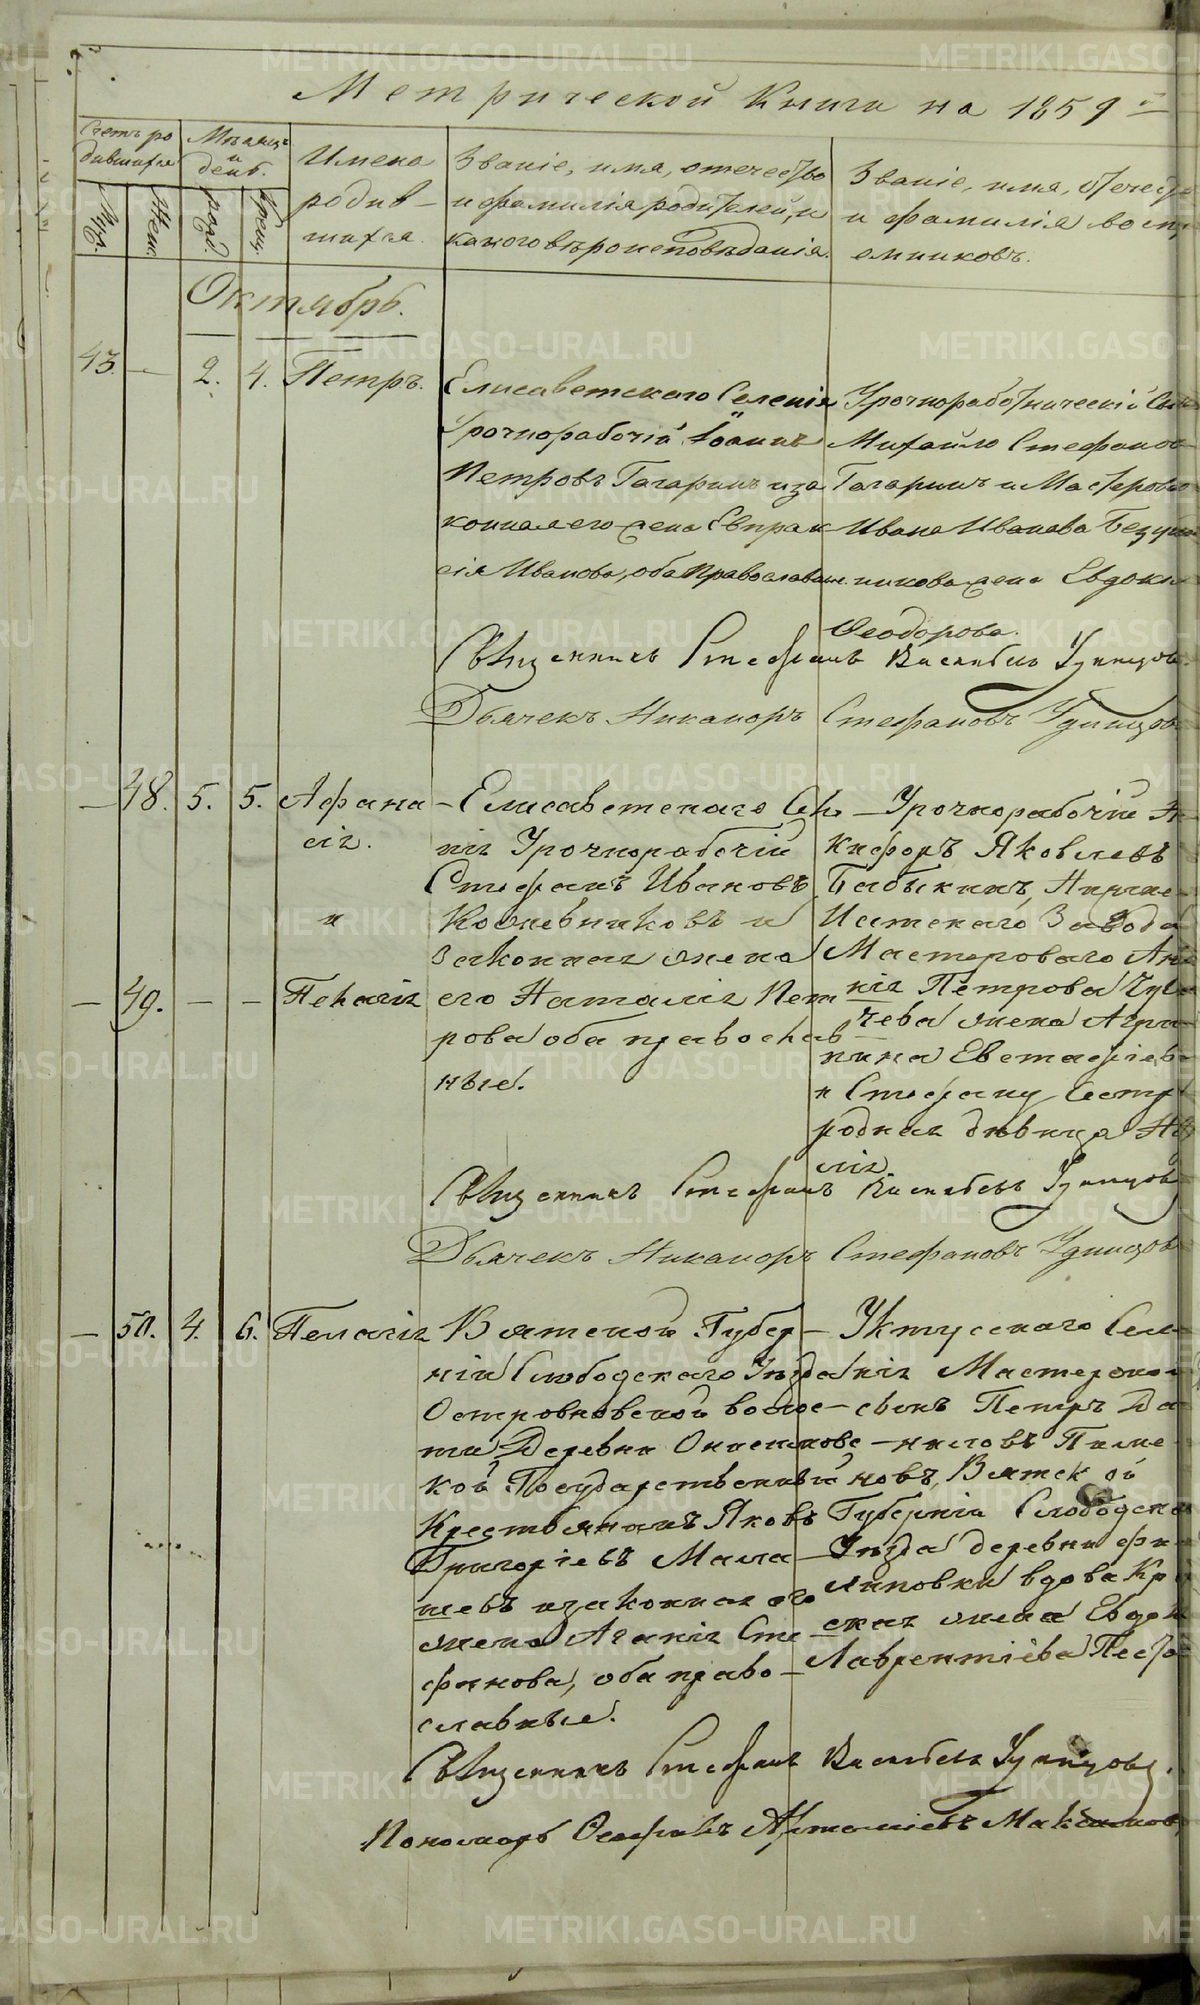 Метрической Книги на 1859
Счетъ ро
дившихся
Муж.
Жен.
Мѣсяцъ
и
день.
рожд.
крещ.
Имена
родив-
шихся.
Званіе, имя, отечество
и фамилія родителей, и
какого вѣроисповѣданія.
Званіе, имя, отечест
и фамилія восп
емниковъ.
Октябрь.
43.
—
2.
4.
Петръ.
Елисаветскаго Селенія
Урочнорабочій Іоаннъ
Петровъ Гагаринъ и за
конная его жена Евпрак
сія Иванова, оба Православные.
Урочноработническій Сын
Михайло Стефанов
Гагаринъ и Мастерово
Ивана Иванова Безук
никова жена Евдокі
Ѳеодорова.
Священникъ Стефанъ Васильевъ Удинцовъ.
Дьячекъ Никаноръ Стефановъ Удинцовъ
—
48.
5.
5.
Афана
сія.
и
Елисаветскаго Селе
нія Урочнорабочій
Стефанъ Ивановъ
Кожевниковъ и
Законная жена
—
49.
—
—
Пелагія
его Наталія Пет
рова оба православ
ные.
Урочнорабочій Н
кифоръ Яковлевъ
Бабыкинъ, Нижне-
Исетскаго Завода
Мастероваго Ана
нія Петрова Чув
чева жена Агри
пина Евстафіев
и Стефану Сестр
родная дѣвица На
лія.
Священникъ Стефанъ Васильевъ Удинцовъ
Дьячекъ Никаноръ Стефановъ Удинцовъ
—
50.
4.
6.
Пелагія
Вятской Губер-
ніи Слободскаго Уѣзда
Островновской волос-
ти Деревни
кой Государственный
Крестьянинъ Яковъ
Григорьевъ
шевъ и законная его
жена Агапія Сте
фанова, оба право-
славные.
Уктусскаго Селе-
нія Мастерской
сынъ Петръ Да
ниловъ Пиме-
новъ, Вятской
Губерніи Слободско
Уѣзда деревни Фи-
липовки вдова Кр
ская жена Евдок
Лаврентіева
Священникъ Стефанъ Васильевъ Удинцовъ.
Пономарь Артемьевъ
METRIKI.GASO-URAL.RU